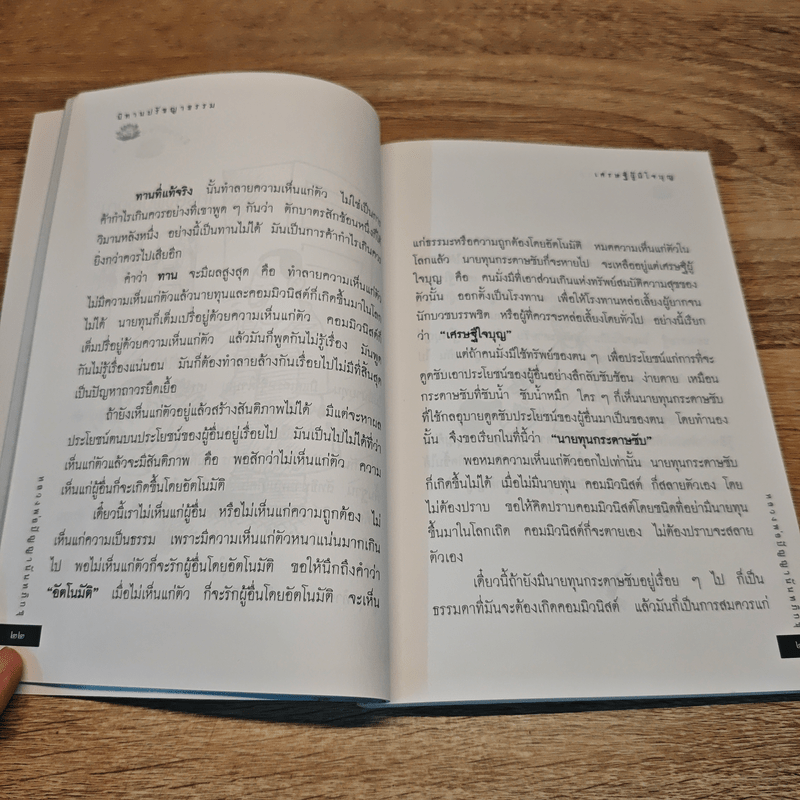 นิทานปรัชญาธรรม
ทานที่แท้จริง นั้นทำลายความเห็นแก่ตัว ไม่ใช่เป็นการ
ค้ากำไรเกินควรอย่างที่เขาพูด ๆ กันว่า ตักบาตรสักช้อนหนึ่งก็ได้
วิมานหลังหนึ่ง อย่างนี้เป็นทานไม่ได้ มันเป็นการค้ากำไรเกินควร
ยิ่งกว่าควรไปเสียอีก
คำว่า ทาน จะมีผลสูงสุด คือ ทำลายความเห็นแก่ตัว
ไม่มีความเห็นแก่ตัวแล้วนายทุนและคอมมิวนิสต์ก็เกิดขึ้นมาในโลก
ไม่ได้ นายทุนก็เต็มเปรี่อยู่ด้วยความเห็นแก่ตัว คอมมิวนิสต์ก็
เต็มเปรี่อยู่ด้วยความเห็นแก่ตัว แล้วมันก็พูดกันไม่รู้เรื่อง มันพูด
กันไม่รู้เรื่องแน่นอน มันก็ต้องทำลายล้างกันเรื่อยไปไม่มีที่สิ้นสุด
เป็นปัญหาถาวรยืดเยื้อ
ถ้ายังเห็นแก่ตัวอยู่แล้วสร้างสันติภาพไม่ได้ มีแต่จะหาผล
ประโยชน์ตนบนประโยชน์ของผู้อื่นอยู่เรื่อยไป มันเป็นไปไม่ได้ที่ว่า
เห็นแก่ตัวแล้วจะมีสันติภาพ คือ พอสึกว่าไม่เห็นแก่ตัว ความ
เห็นแก่ผู้อื่นก็จะเกิดขึ้นโดยอัตโนมัติ
เดี๋ยวนี้เราไม่เห็นแก่ผู้อื่น หรือไม่เห็นแก่ความถูกต้อง ไม่
เห็นแก่ความเป็นธรรม เพราะมีความเห็นแก่ตัวหนาแน่นมากเกิน
ไป พอไม่เห็นแก่ตัวก็จะรักผู้อื่นโดยอัตโนมัติ ขอให้นึกถึงคำว่า
"อัตโนมัติ" เมื่อไม่เห็นแก่ตัว ก็จะรักผู้อื่นโดยอัตโนมัติ จะเห็น
หลวงพ่อปัญญานันทภิกขุ
๒๒
เศรษฐีผู้มีใจบุญ
แก่ธรรมะหรือความถูกต้องโดยอัตโนมัติ หมดความเห็นแก่ตัวใน
โลกแล้ว นายทุนกระดาษซับก็จะหายไป จะเหลืออยู่แต่เศรษฐีผู้
ใจบุญ คือ คนมั่งมีที่เอาส่วนเกินแห่งทรัพย์สมบัติความสุขของ
ตัวนั้น ออกตั้งเป็นโรงทาน เพื่อให้โรงทานหล่อเลี้ยงผู้ยากจน
นักบวชบรรพชิต หรือผู้ที่ควรจะหล่อเลี้ยงโดยทั่วไป อย่างนี้เรียก
ว่า "เศรษฐีใจบุญ"
แต่ถ้าคนมั่งมีใช้ทรัพย์ของตน ๆ เพื่อประโยชน์แก่การที่จะ
ดูดซับเอาประโยชน์ของผู้อื่นอย่างลึกลับซับซ้อน ง่ายดาย เหมือน
กระดาษซับที่ซับน้ำ ซับน้ำหมึก ใคร ๆ ก็เห็นนายทุนกระดาษซับ
ที่ใช้กลอุบายดูดซับประโยชน์ของผู้อื่นมาเป็นของตน โดยทำนอง
นั้น จึงขอเรียกในที่นี้ว่า "นายทุนกระดาษซับ"
พอหมดความเห็นแก่ตัวออกไปเท่านั้น นายทุนกระดาษซับ
ก็เกิดขึ้นไม่ได้ เมื่อไม่มีนายทุน คอมมิวนิสต์ ก็สลายตัวเอง โดย
ไม่ต้องปราบ ขอให้คิดปราบคอมมิวนิสต์โดยชนิดที่อย่ามีนายทุน
ขึ้นมาในโลกเถิด คอมมิวนิสต์ก็จะตายเอง ไม่ต้องปราบจะสลาย
ตัวเอง
เดี๋ยวนี้ถ้ายังมีนายทุนกระดาษซับอยู่เรื่อย ๆ ไป ก็เป็น
ธรรมดาที่มันจะต้องเกิดคอมมิวนิสต์ แล้วมันก็เป็นการสมควรแก่
หลวงพ่อปัญญานันทภิกขุ